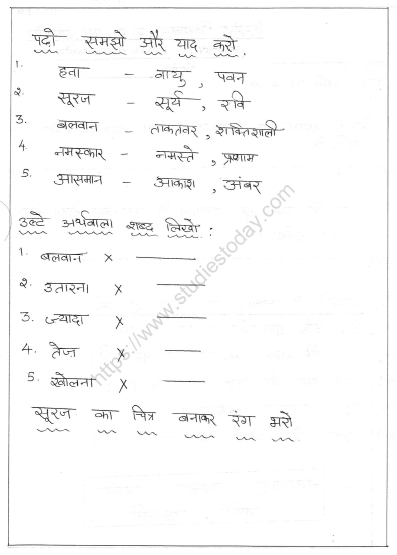 पढो समझो और याद करो.
1. हवा - वायु, पवन
2. सूरज - सूर्य, रवि
3. बलवान - ताकतवर, शक्तिशाली
4. नमस्कार - नमस्ते, प्रणाम
5. आसमान - आकाश, अंबर
उल्टे अर्थवाला शब्द लिखो:
1. बलवान x ______
2. उतारना x ______
3. ज्यादा x ______
4. तेज़ x ______
5. खोलना x ______
सूरज का चित्र बनाकर रंग भरो
https://www.studiestoday.com